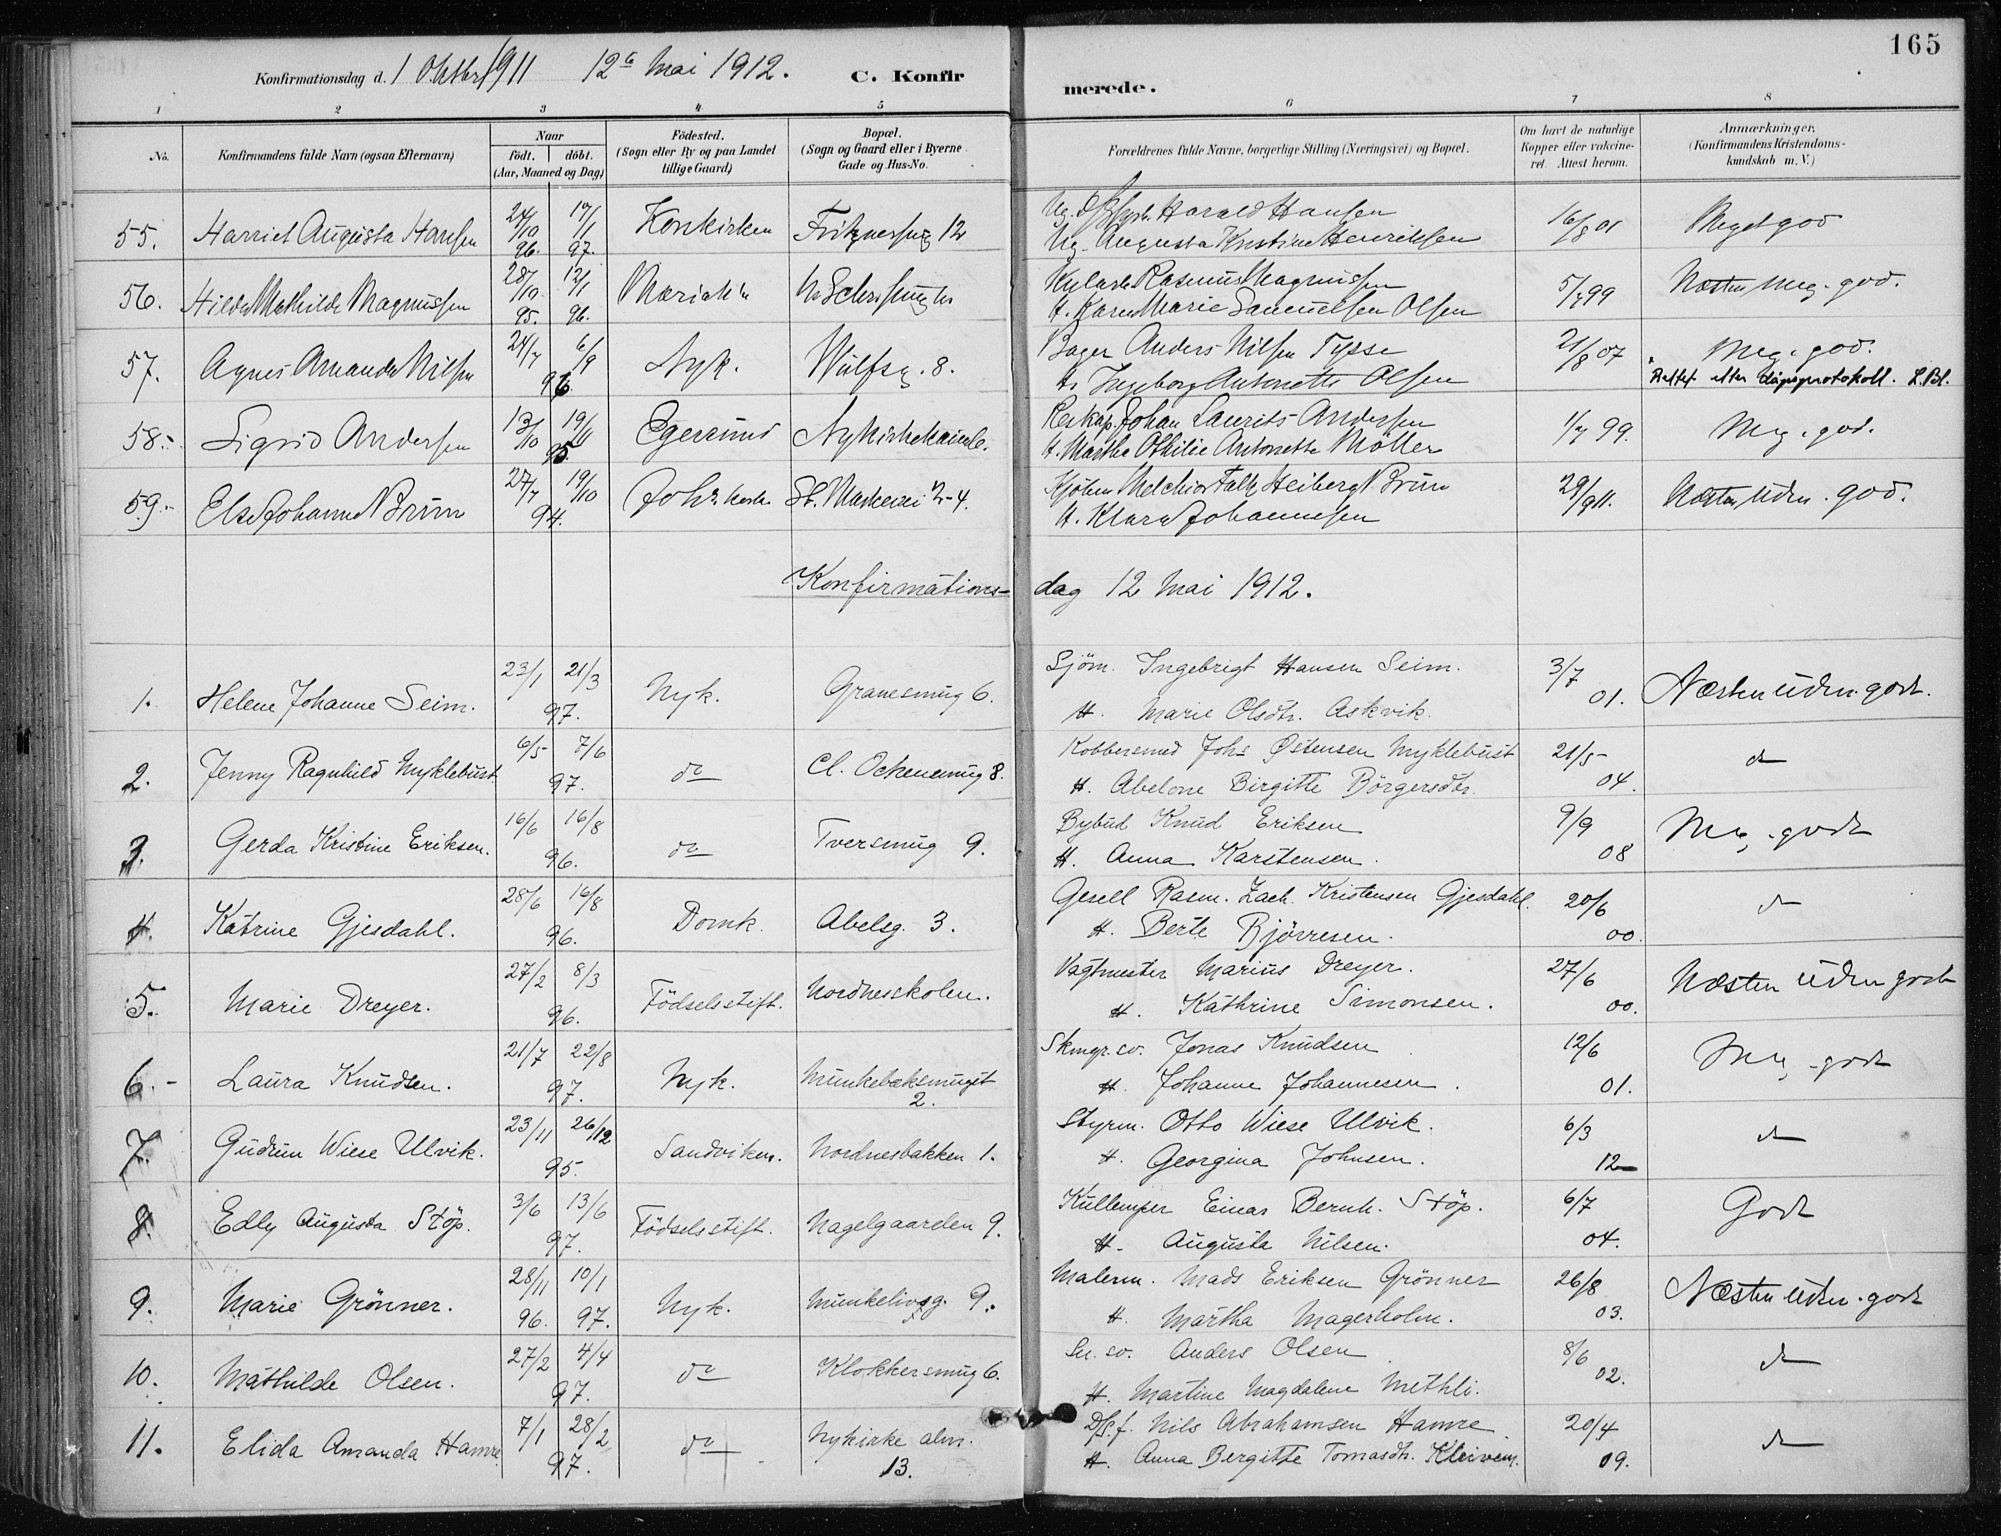 165
Konfirmationsdag d. 1 Oktbr 1911 12te Mai 1912. C. Konfirmerede.
1 2 3 4 5 6 7 8
No. Konfirmandens fulde Navn (ogsaa Efternavn) Naar födt. döbt. (Aar, Maaned og Dag) Födested. (Sogn eller By og paa Landet tillige Gaard) Bopæl. (Sogn og Gaard eller i Byerne Gade og Hus-No. Forældrenes fulde Navne, borgerlige Stilling (Næringsvei) og Bopæl. Om havt de naturlige Kopper eller vakcineret. Attest herom. Anmærkninger. (Konfirmandens Kristendomskundskab m. V.)
55. Harriet Augusta Hansen 24/10 96. 17/1 97. Korskirken Fritznersmg 12 Ug. Harald Hansen 16/8 01 Meget god
Ug. Augusta Kristine Henriksen
56. Hilda Mathilde Magnussen 28/10 95. 12/1 96. Mariak. Rasmus Magnussen 5/7 99 Næsten meg. god.
H. Karen Marie Samuelsen Olsen
57. Agnes Amanda Nilsen 24/7 6/9 96 Nyk. Wulfsg. 8. Bager Anders Nilsen Tysse 21/8 07 Meg. god.
H. Ingeborg Antonette Olsen Rettet efter dåpsprotokoll. L.Bl.
58.- Sigrid Andersen 13/10 19/11 95. Egersund Nykirkealm 6. Johan Laurits Andersen 1/7 99. Meg. god.
H. Marthe Othilie Antonette Möller
59.- Else Johanne Brun 27/7 19/10 94. Johs kirke St. Markevei 2-4. Kjöbm Melchior Falk Heiberg Brun 29/9 11. Næsten uden. god.
H. Klara Johannesen
Konfirmations-dag 12 Mai 1912.
1. Helene Johanne Seim. 23/1 21/3 97. Nyk. Granesmug 6. Sjöm. Ingebrigt Hansen Seim. 3/7 01. Næsten uden. godt.
H. Marie Olsdtr. Askvik.
2. Jenny Ragnhild Myklebust. 6/5 7/6 97. do Cl. Ockensmug 8. Kobbersmed Johs Østensen Myklebust 21/5 04. do
H. Abelone Birgitte Börgersdtr.
3. Gerda Kristine Eriksen. 16/6 16/8 96. do Tversmug 9. Bybud Knud Eriksen 9/9 08 Meg. godt
H. Anna Karstensen.
4. Katrine Gjesdahl. 28/6 16/8 96. Domk. Abelsg. 3. Gesell Rasm. Zach. Kristensen Gjesdahl. 20/6 00. do
H. Berte Bjövresen.
5. Marie Dreyer. 27/2 8/3 96. Födselsstift. Nordnesskolen. Vagtmester Marius Dreyer. 27/6 00. Næsten uden godt
H. Kathrine Simonsen.
6.- Laura Knudsen. 21/7 22/8 97. Nyk. Munkebæksmuget 2. Skmgr. sv. Jonas Knudsen 12/6 01. Meg. godt
H. Johanne Johannesen.
7. Gudrun Wiese Ulvik. 23/11 26/12 95. Sandviken. Nordnesbakken 1. Styrm. Otto Wiese Ulvik. 6/3 12 do
H. Georgina Johnsen.
8. Edly Augusta Stöp. 3/6 13/6 97. Födselsstift. Nagelgaarden 9. Kullemper Einar Bernh. Stöp. 6/7 04. Godt
H. Augusta Nilsen.
9. Marie Grönner. 28/11 96. 10/1 97. Nyk. Munkelivsg. 9. Malerm. Mads Eriksen Grönner 26/8 03. Næsten uden. godt
H. Martha Magerholm.
10. Mathilde Olsen. 27/2 4/4 97. do Klokkersmug 6. Sn. sv. Anders Olsen 8/6 02. do
H. Martine Magdalene Methli.
11. Elida Amanda Hamre. 7/1 28/2 97. do Nykirke alm. 13. D/s. f. Nils Abrahamsen Hamre. 20/4 09. do
H. Anna Bergitte Tomasdtr. Kleivem.